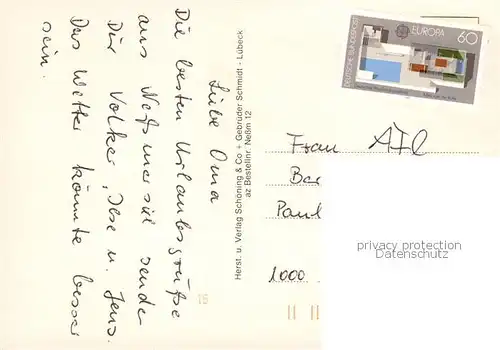 Liebe Oma
Die besten Urlaubsgrüße
aus Neßmersiel sende
Dir Volker, Ilse u. Jens.
Das Wetter könnte besser
sein.
Herst. u. Verlag Schöning & Co + Gebrüder Schmidt - Lübeck
az Bestellnr. Neßm 12
DEUTSCHE BUNDESPOST
EUROPA
60
Frau
Paul
1000
privacy protection
Datenschutz